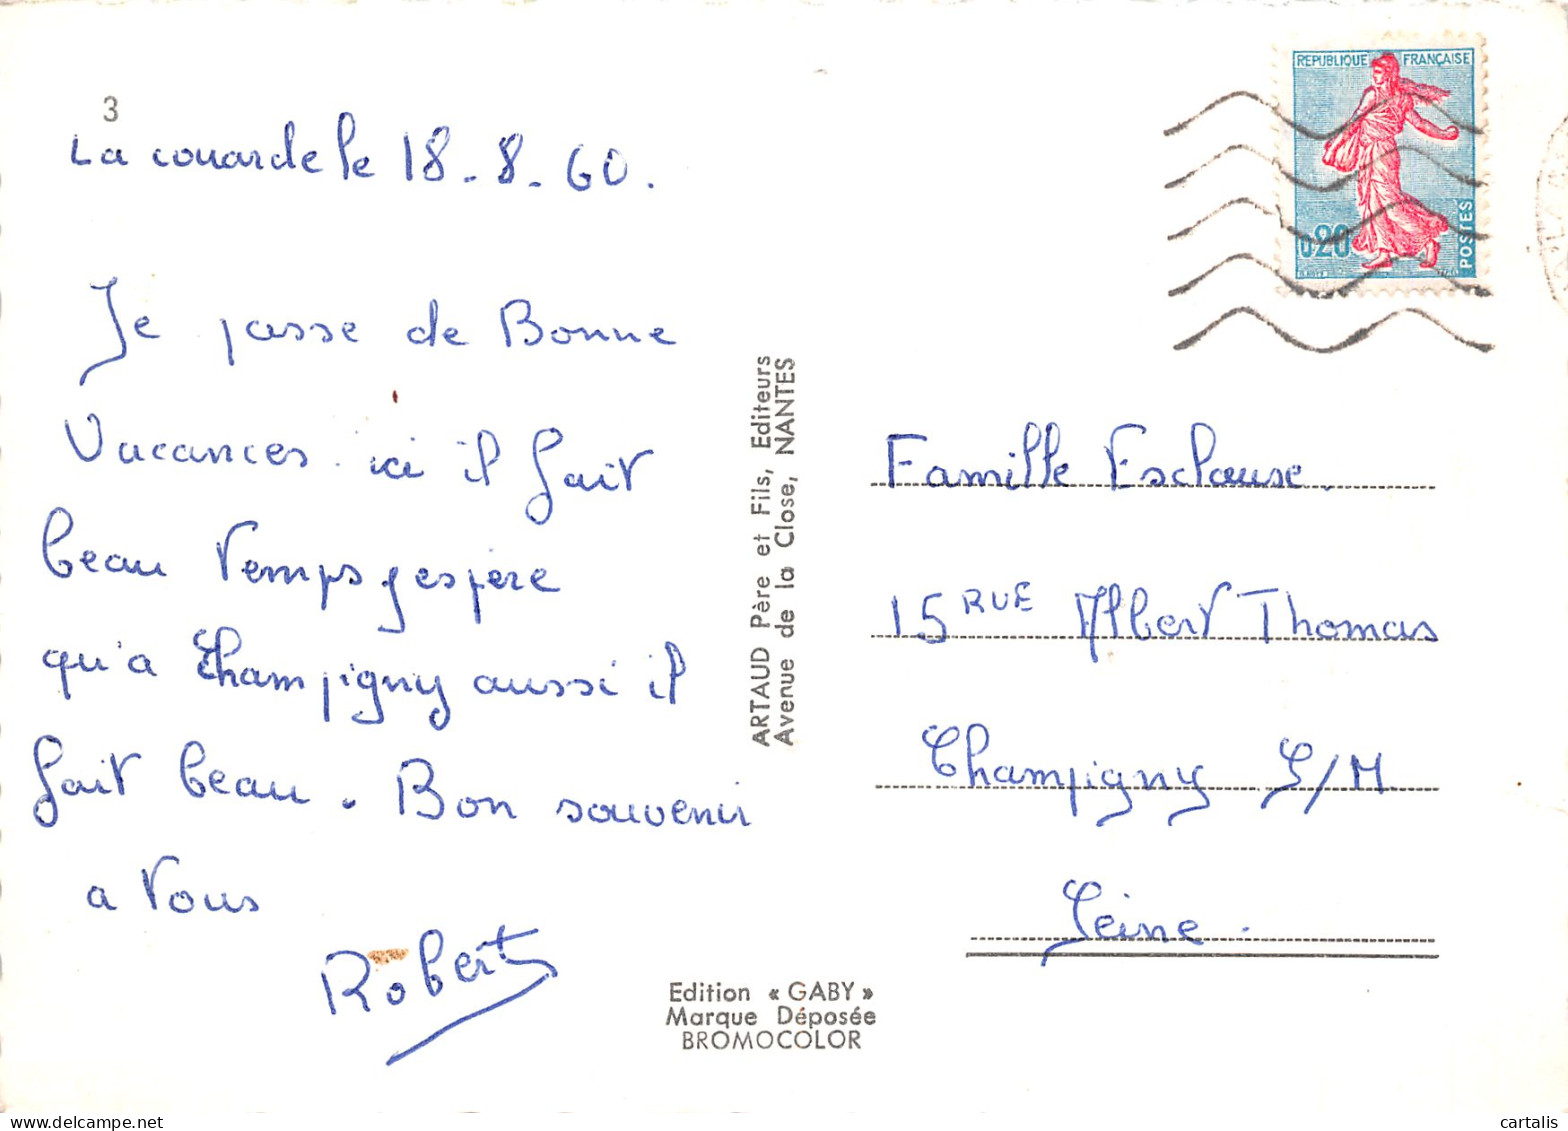 3
La couarde le 18-8-60.
Je passe de Bonne
Vacances. ici il fait
beau temps j'espère
qu'a Champigny aussi il
fait beau. Bon souvenir
a vous
Robert
ARTAUD Père et Fils, Editeurs
Avenue de la Close, NANTES
Edition « GABY »
Marque Déposée
BROMOCOLOR
REPUBLIQUE FRANÇAISE
0,20
POSTES
Famille Esclause.
15 RUE Albert Thomas
Champigny S/M
Seine.
cartalis
delcampe.net